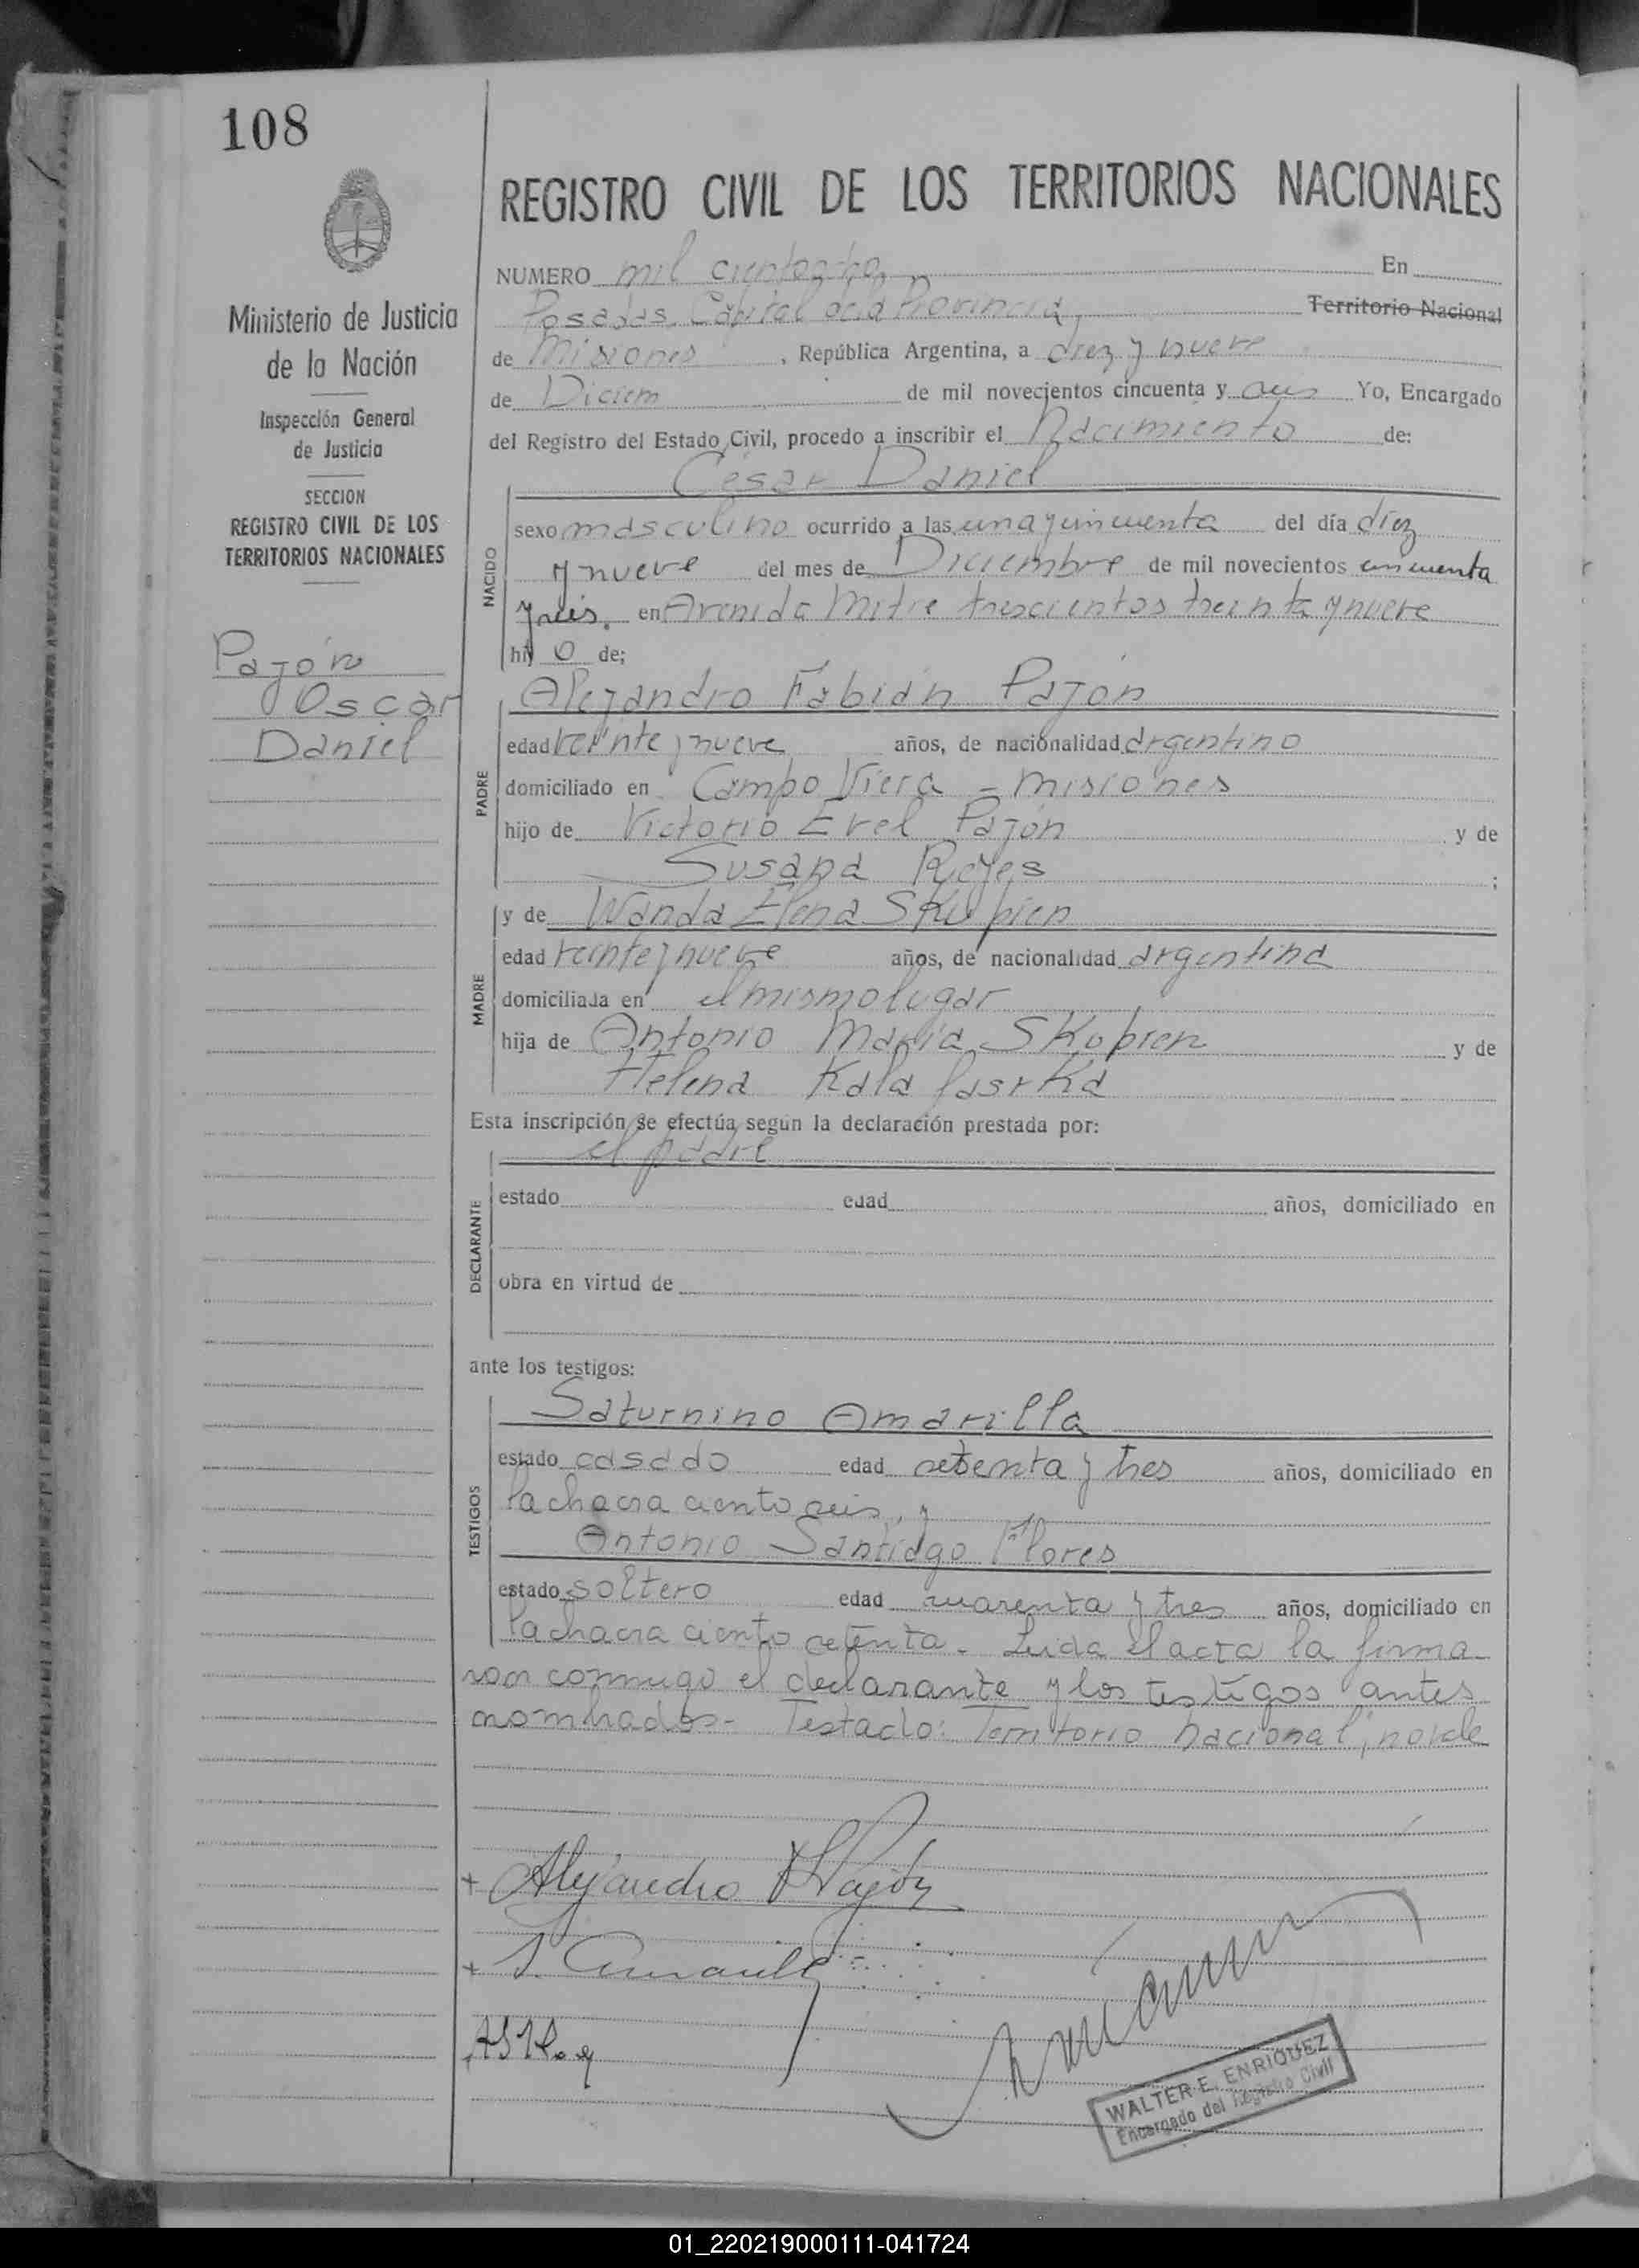 108
REGISTRO CIVIL DE LOS TERRITORIOS NACIONALES
Ministerio de Justicia
de la Nación
Inspección General
de Justicia
SECCION
REGISTRO CIVIL DE LOS
TERRITORIOS NACIONALES
Pajón
Oscar
Daniel
NUMERO mil cientoocho En
Posadas, Capital de la Provincia, Territorio Nacional
de Misiones, República Argentina, a diez y nueve
de Diciem de mil novecientos cincuenta y seis Yo, Encargado
del Registro del Estado Civil, procedo a inscribir el Nacimiento de:
César Daniel
NACIDO
sexo masculino ocurrido a las una y cincuenta del día diez
y nueve del mes de Diciembre de mil novecientos cincuenta
y seis. en Avenida Mitre trescientos treinta y nueve
hijo de;
PADRE
Alejandro Fabián Pajón
edad veinte y nueve años, de nacionalidad argentino
domiciliado en Campo Viera - Misiones
hijo de Victorio Evel Pajón y de
Susana Reyes ;
MADRE
y de Wanda Elena Skupien
edad veinte y nueve años, de nacionalidad argentina
domiciliada en el mismo lugar
hija de Antonio María Skupien y de
Helena
Esta inscripción se efectúa según la declaración prestada por:
el padre
DECLARANTE
estado edad años, domiciliado en
obra en virtud de
ante los testigos:
TESTIGOS
Saturnino Amarilla
estado casado edad setenta y tres años, domiciliado en
la chacra ciento seis, y
Antonio Santiago Flores
estado soltero edad cuarenta y tres años, domiciliado en
la chacra ciento setenta. Leida el acta la firma
ron conmigo el declarante y los testigos antes
nombrados- Testado: Territorio Nacional, no vale
+ Alejandro F Pajón
+ S. Amarilla
WALTER E. ENRIQUEZ
Encargado del Registro Civil
01_220219000111-041724